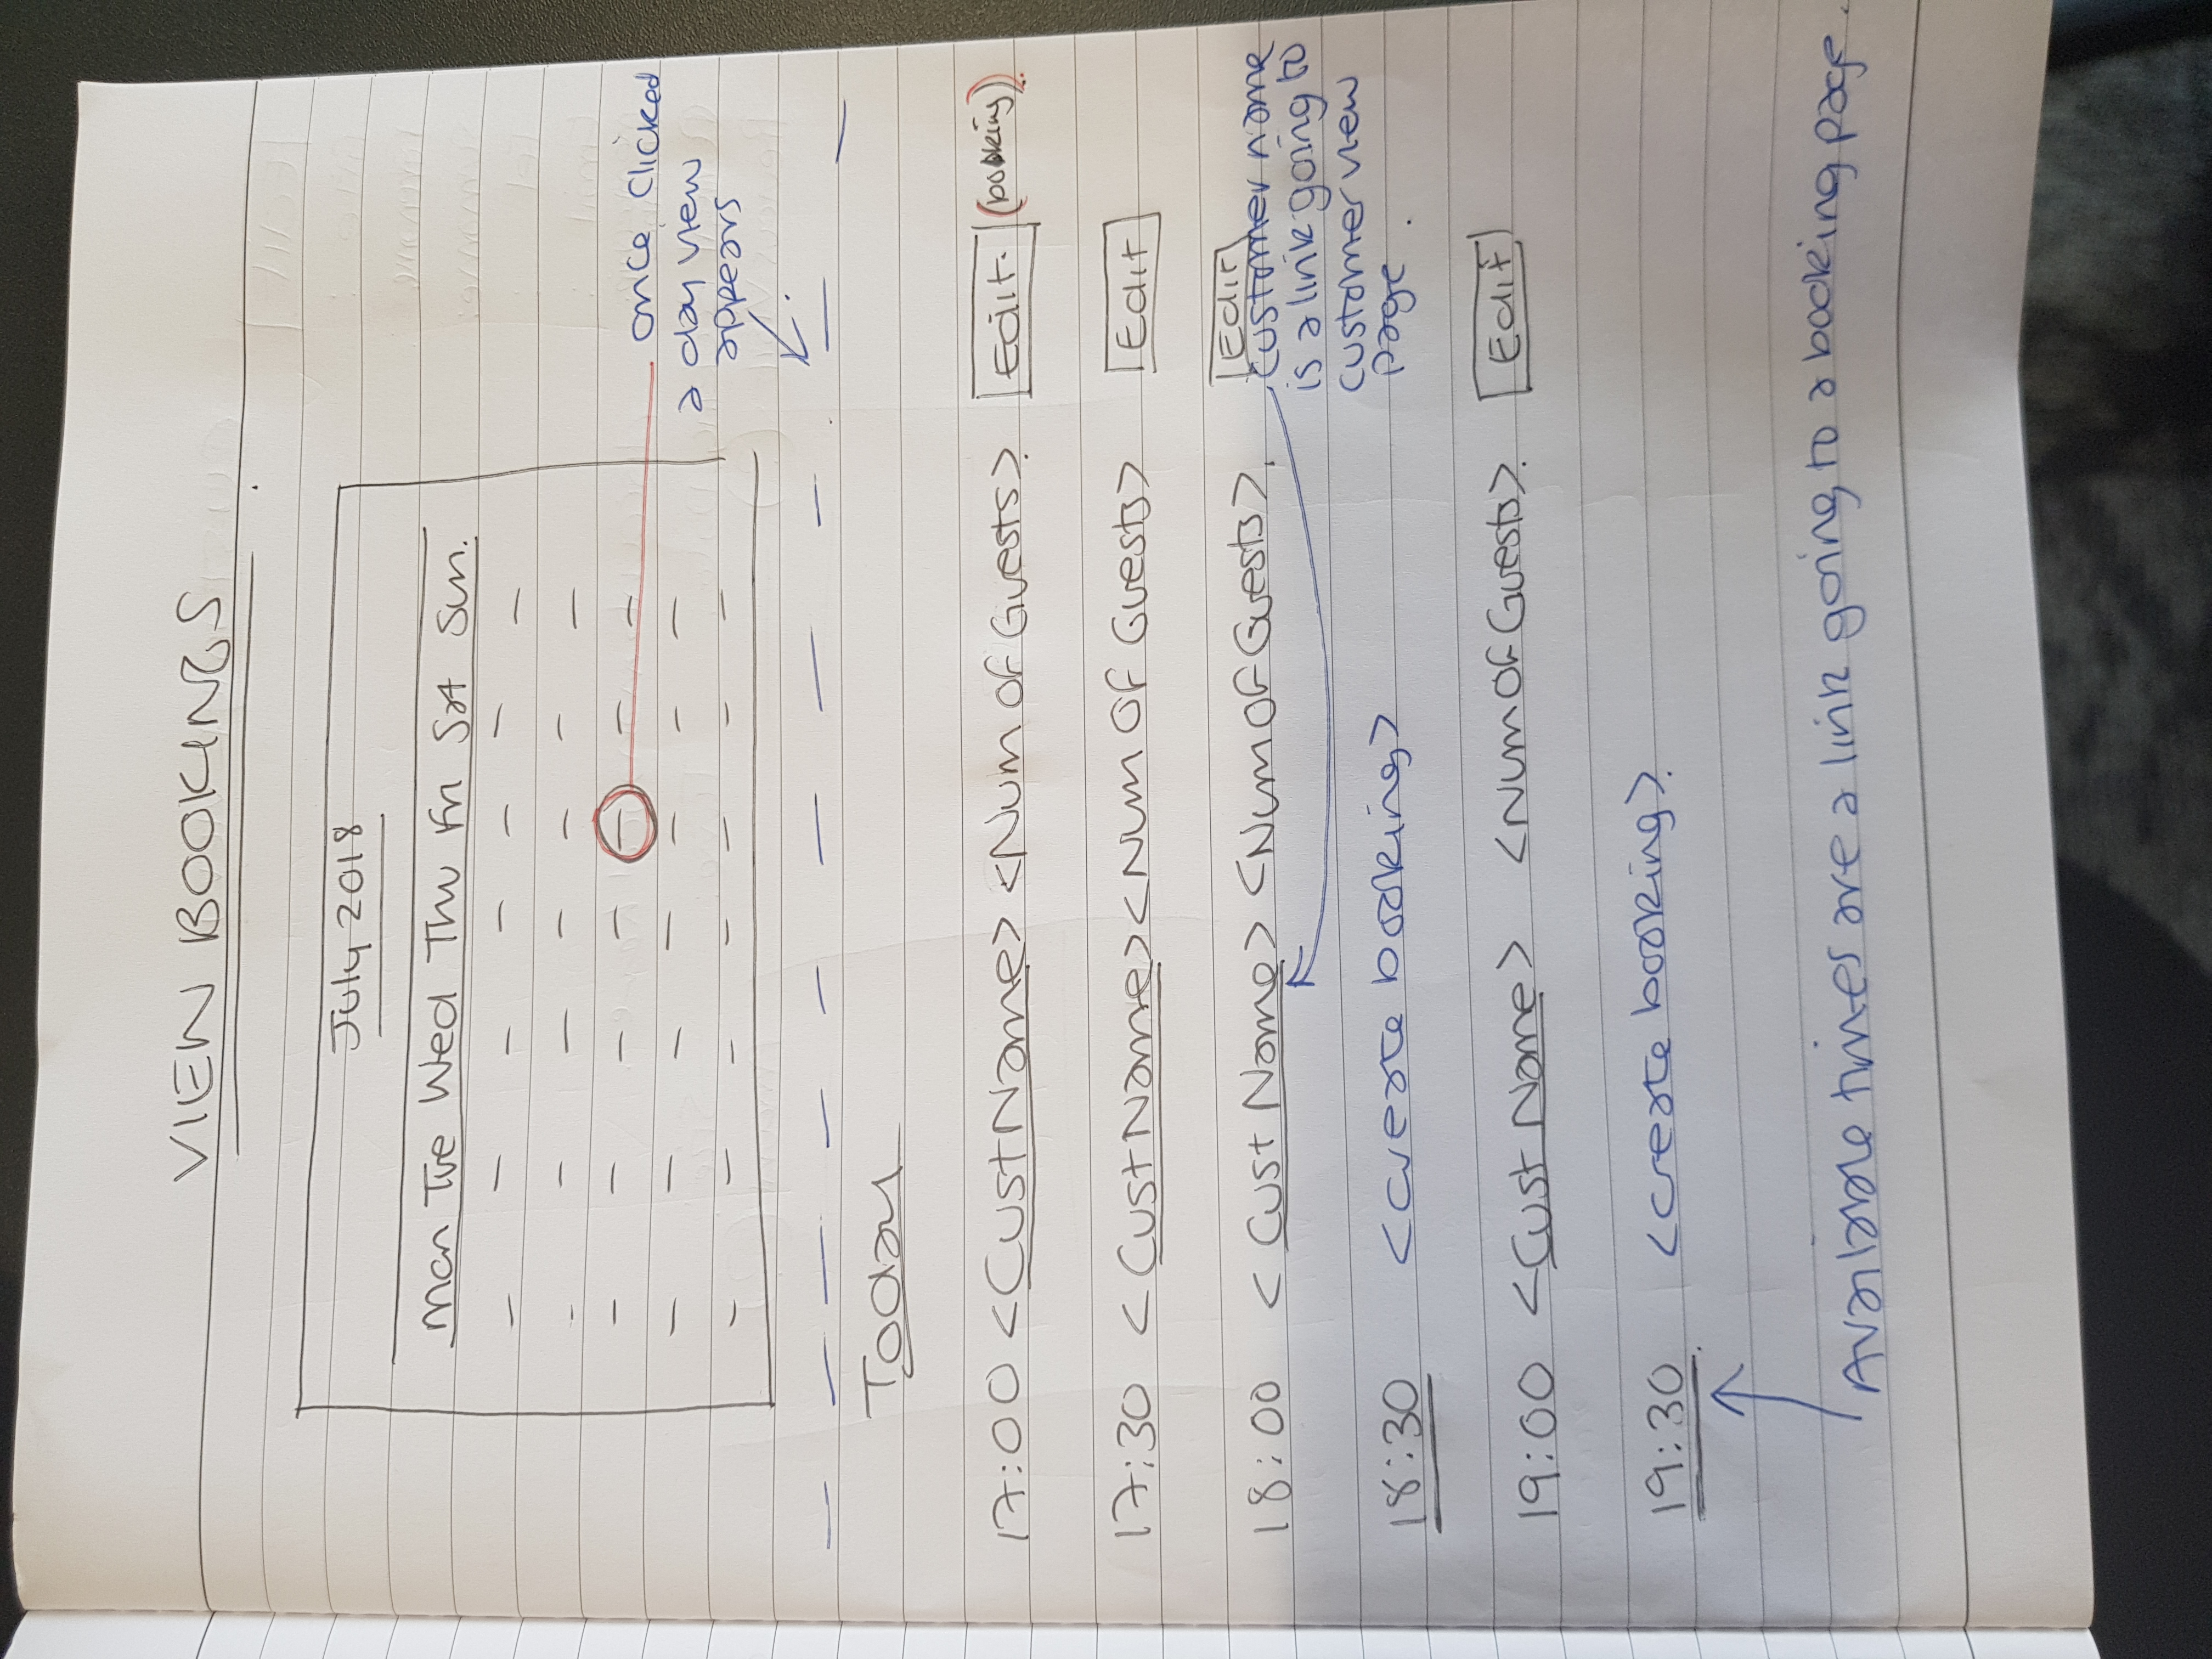 VIEW BOOKINGS
July 2018
Mon Tue Wed Thu Fri Sat Sun.
once clicked
a day view
appears
Today
17:00 <CustName> <Num Of Guests> Edit. (booking)
17:30 <CustName> <Num Of Guests> Edit
18:00 <Cust Name> <Num Of Guests>. Edit
customer name
is a link going to
customer view
page.
18:30 <create booking>
19:00 <Cust Name> <Num Of Guests>. Edit
19:30 <create booking>.
Available times are a link going to a booking page.